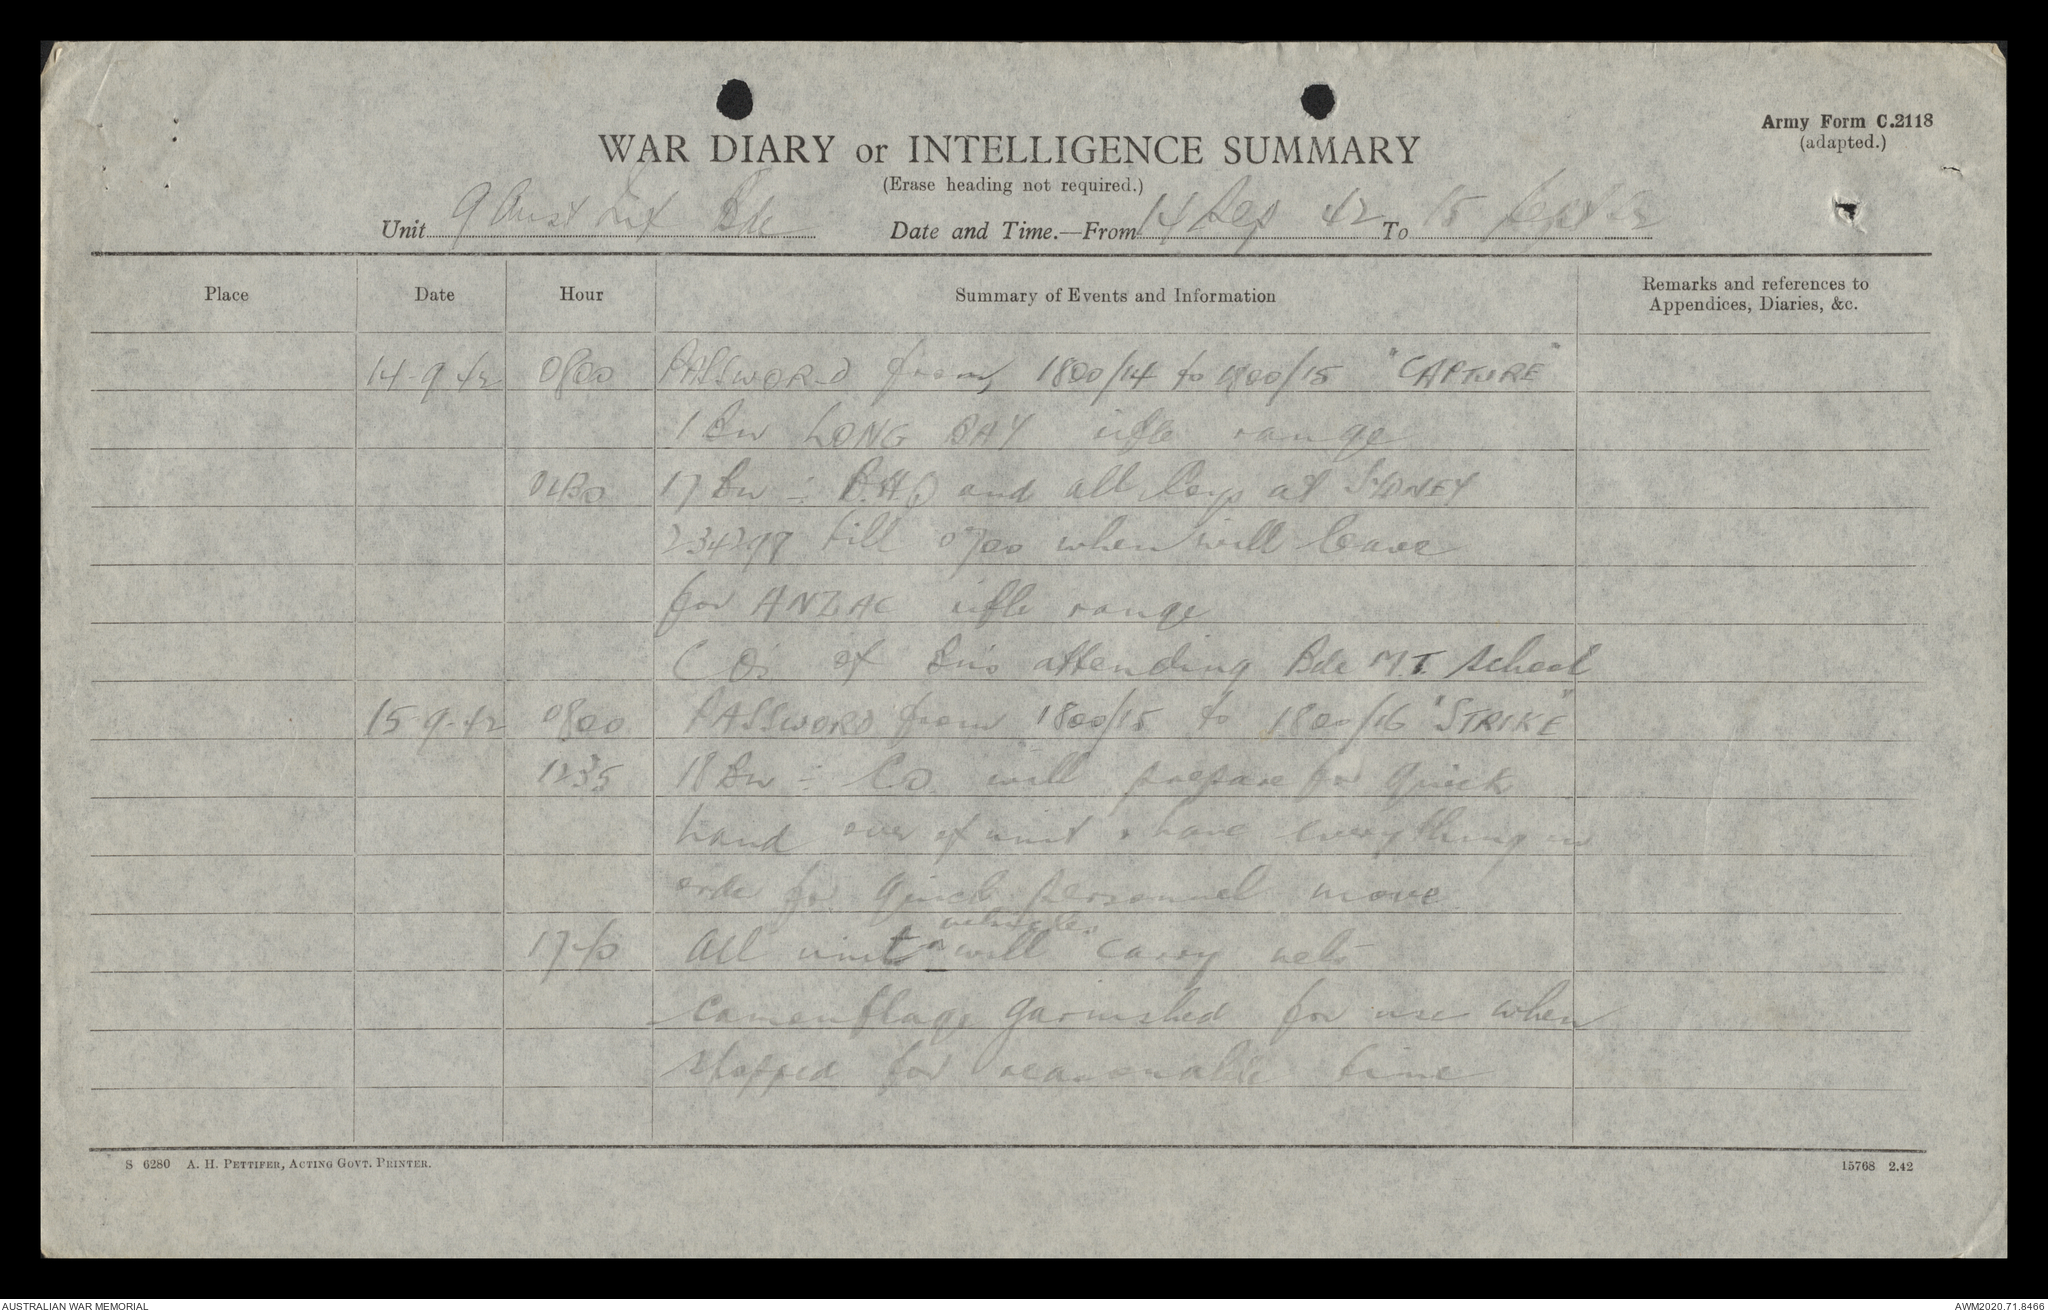 Army Form C.2118
(adapted.)
WAR DIARY or INTELLIGENCE SUMMARY
(Erase heading not required.)
Unit 9 Aust Inf Bde Date and Time.—From 14 Sep 42 To 15 Sept 42
Place Date Hour Summary of Events and Information Remarks and references to
Appendices, Diaries, &c.
14-9-42 0800 PASSWORD from 1800/14 to 1800/15 "CAPTURE"
1 Bn LONG BAY rifle range
17 Bn :- B.HQ and all Coys at SYDNEY
234297 till 0700 when will leave
for ANZAC rifle range
C O's of Bn's attending Bde M.T. School
15-9-42 0800 PASSWORD from 1800/15 to 1800/16 "STRIKE"
1235 18 Bn :- CO. will prepare for quick
hand over of unit & have everything in
order for quick personnel move.
All unit vehicles will carry nets
camouflage garnished for use when
stopped for reasonable time
S 6280 A. H. PETTIFER, ACTING GOVT. PRINTER.
15768 2.42
AUSTRALIAN WAR MEMORIAL
AWM2020.71.8466